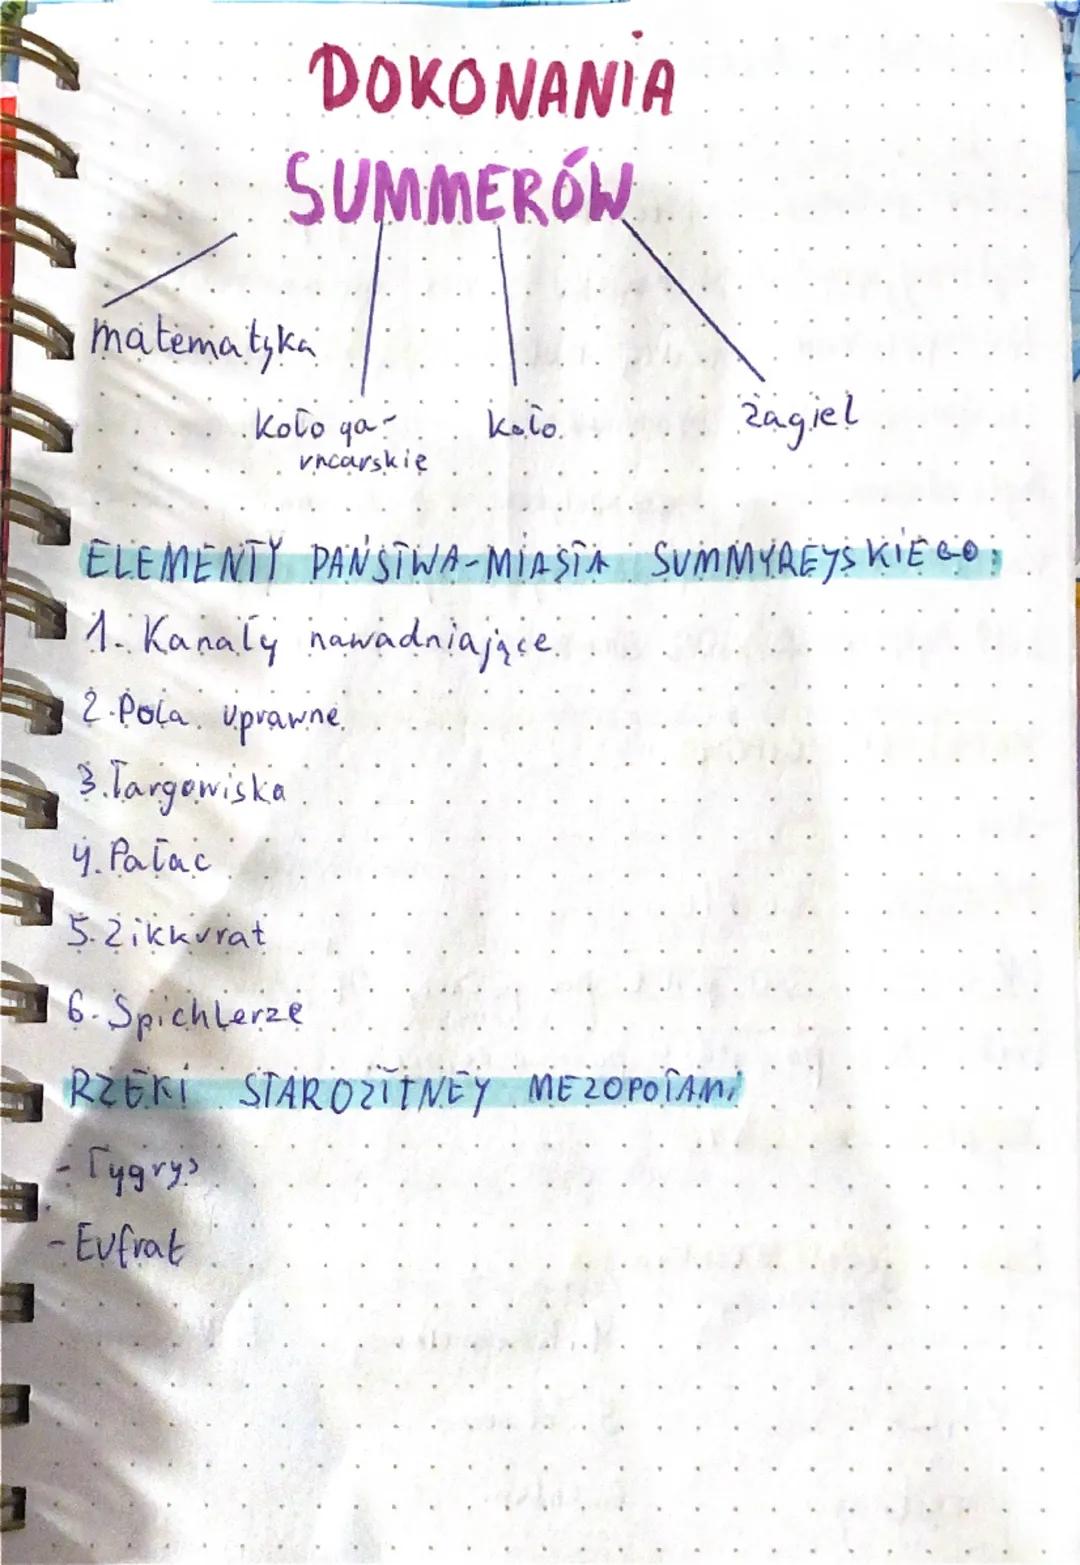 DOKONANIA
SUMMERÓW
matematyka
koło ga-
rncarskie
koło
żagiel
ELEMENTY PAŃSTWA-MIASTA SUMMYREYSKIEGO:
1. Kanały nawadniające
2. Pola uprawne
3. Targowiska
4. Pałac
5. Zikkurat
6. Spichlerze
RZEKI STAROŻYTNEY MEZOPOTAMi
- Tygrys
- Eufrat